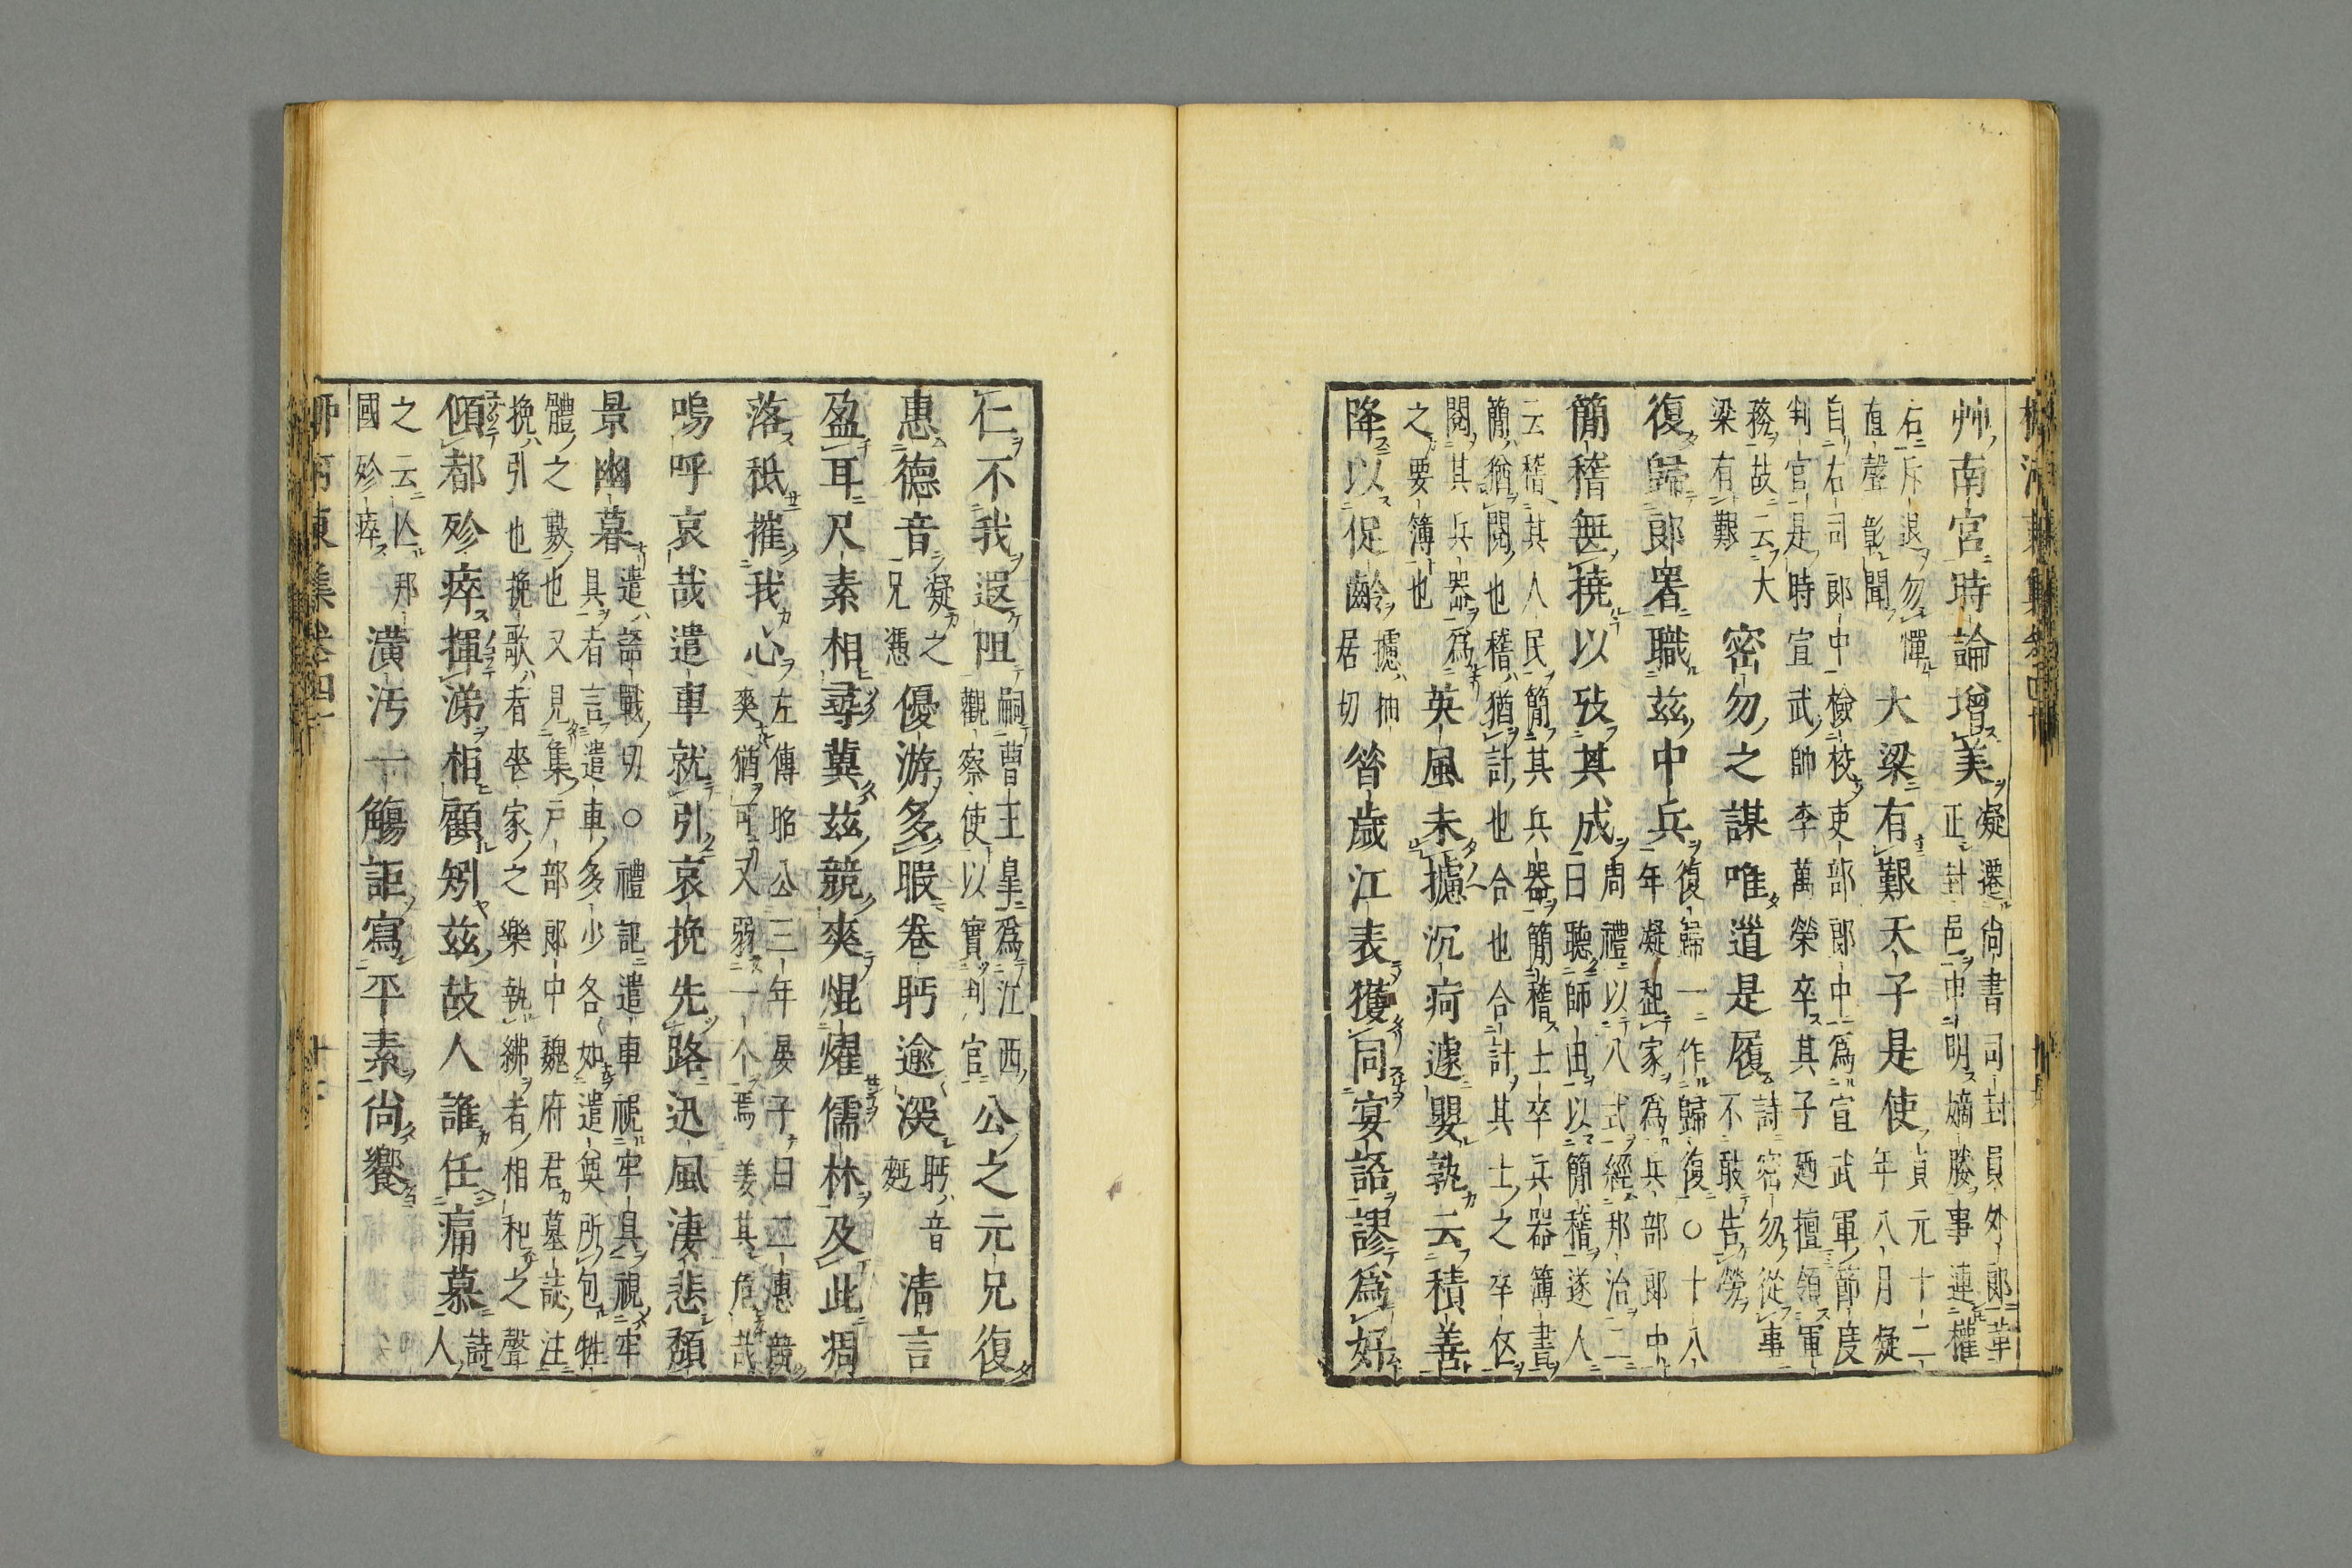 艸南宮時論增美
凝遷尚書司封員外郎革
正封邑申明嫡媵事連權
右斥退勿憚
直聲彰聞
大梁有艱天子是使
貞元十二
年八月凝
自右司郎中檢校吏部郎中爲宣武軍節度
判官是時宣武帥李萬榮卒其子廼擅領軍
務故云大
梁有艱
密勿之謀唯道是履
詩密勿從事
不敢告勞
復歸郎署職茲中兵
復歸一作歸復○十八
年凝起家爲兵部郎中
簡稽無撓以攷其成
周禮以八式經邦治二
曰聽師田以簡稽遂人
云稽其人民簡其兵器簡稽士卒兵器簿書
簡猶閱也稽猶計也合也合計其士之卒伍
閱其兵器爲
之要簿也
英風未攄沉痾遽嬰孰云積善
降以促齡
攄抽
居切
昝歲江表獲同宴語謬爲好
仁不我遐阻
嗣曹王皐爲江西
觀察使以實判官
公之元兄復
惠德音
凝之
兄憑
優游多暇卷眄逾深
眄音
麪
清言
盈耳尺素相尋冀茲競爽焜燿儒林及此凋
落秪摧我心
左傳昭公三年晏子曰二惠競
爽猶可又弱一个焉姜其危哉
嗚呼哀哉遣車就引哀挽先路迅風淒悲頹
景幽暮
遣詰戰切○禮記遣車視牢具視牢
具者言遣車多少各如遣奠所包牲
體之數也又見集戶部郎中魏府君墓誌注
挽引也挽歌者喪家之樂執紼者相和之聲
傾都殄瘁揮涕相顧矧茲故人誰任痛慕
詩
人
之云亡邦
國殄瘁
潢汚一觴詎寫平素尚饗
柳河東集卷四十